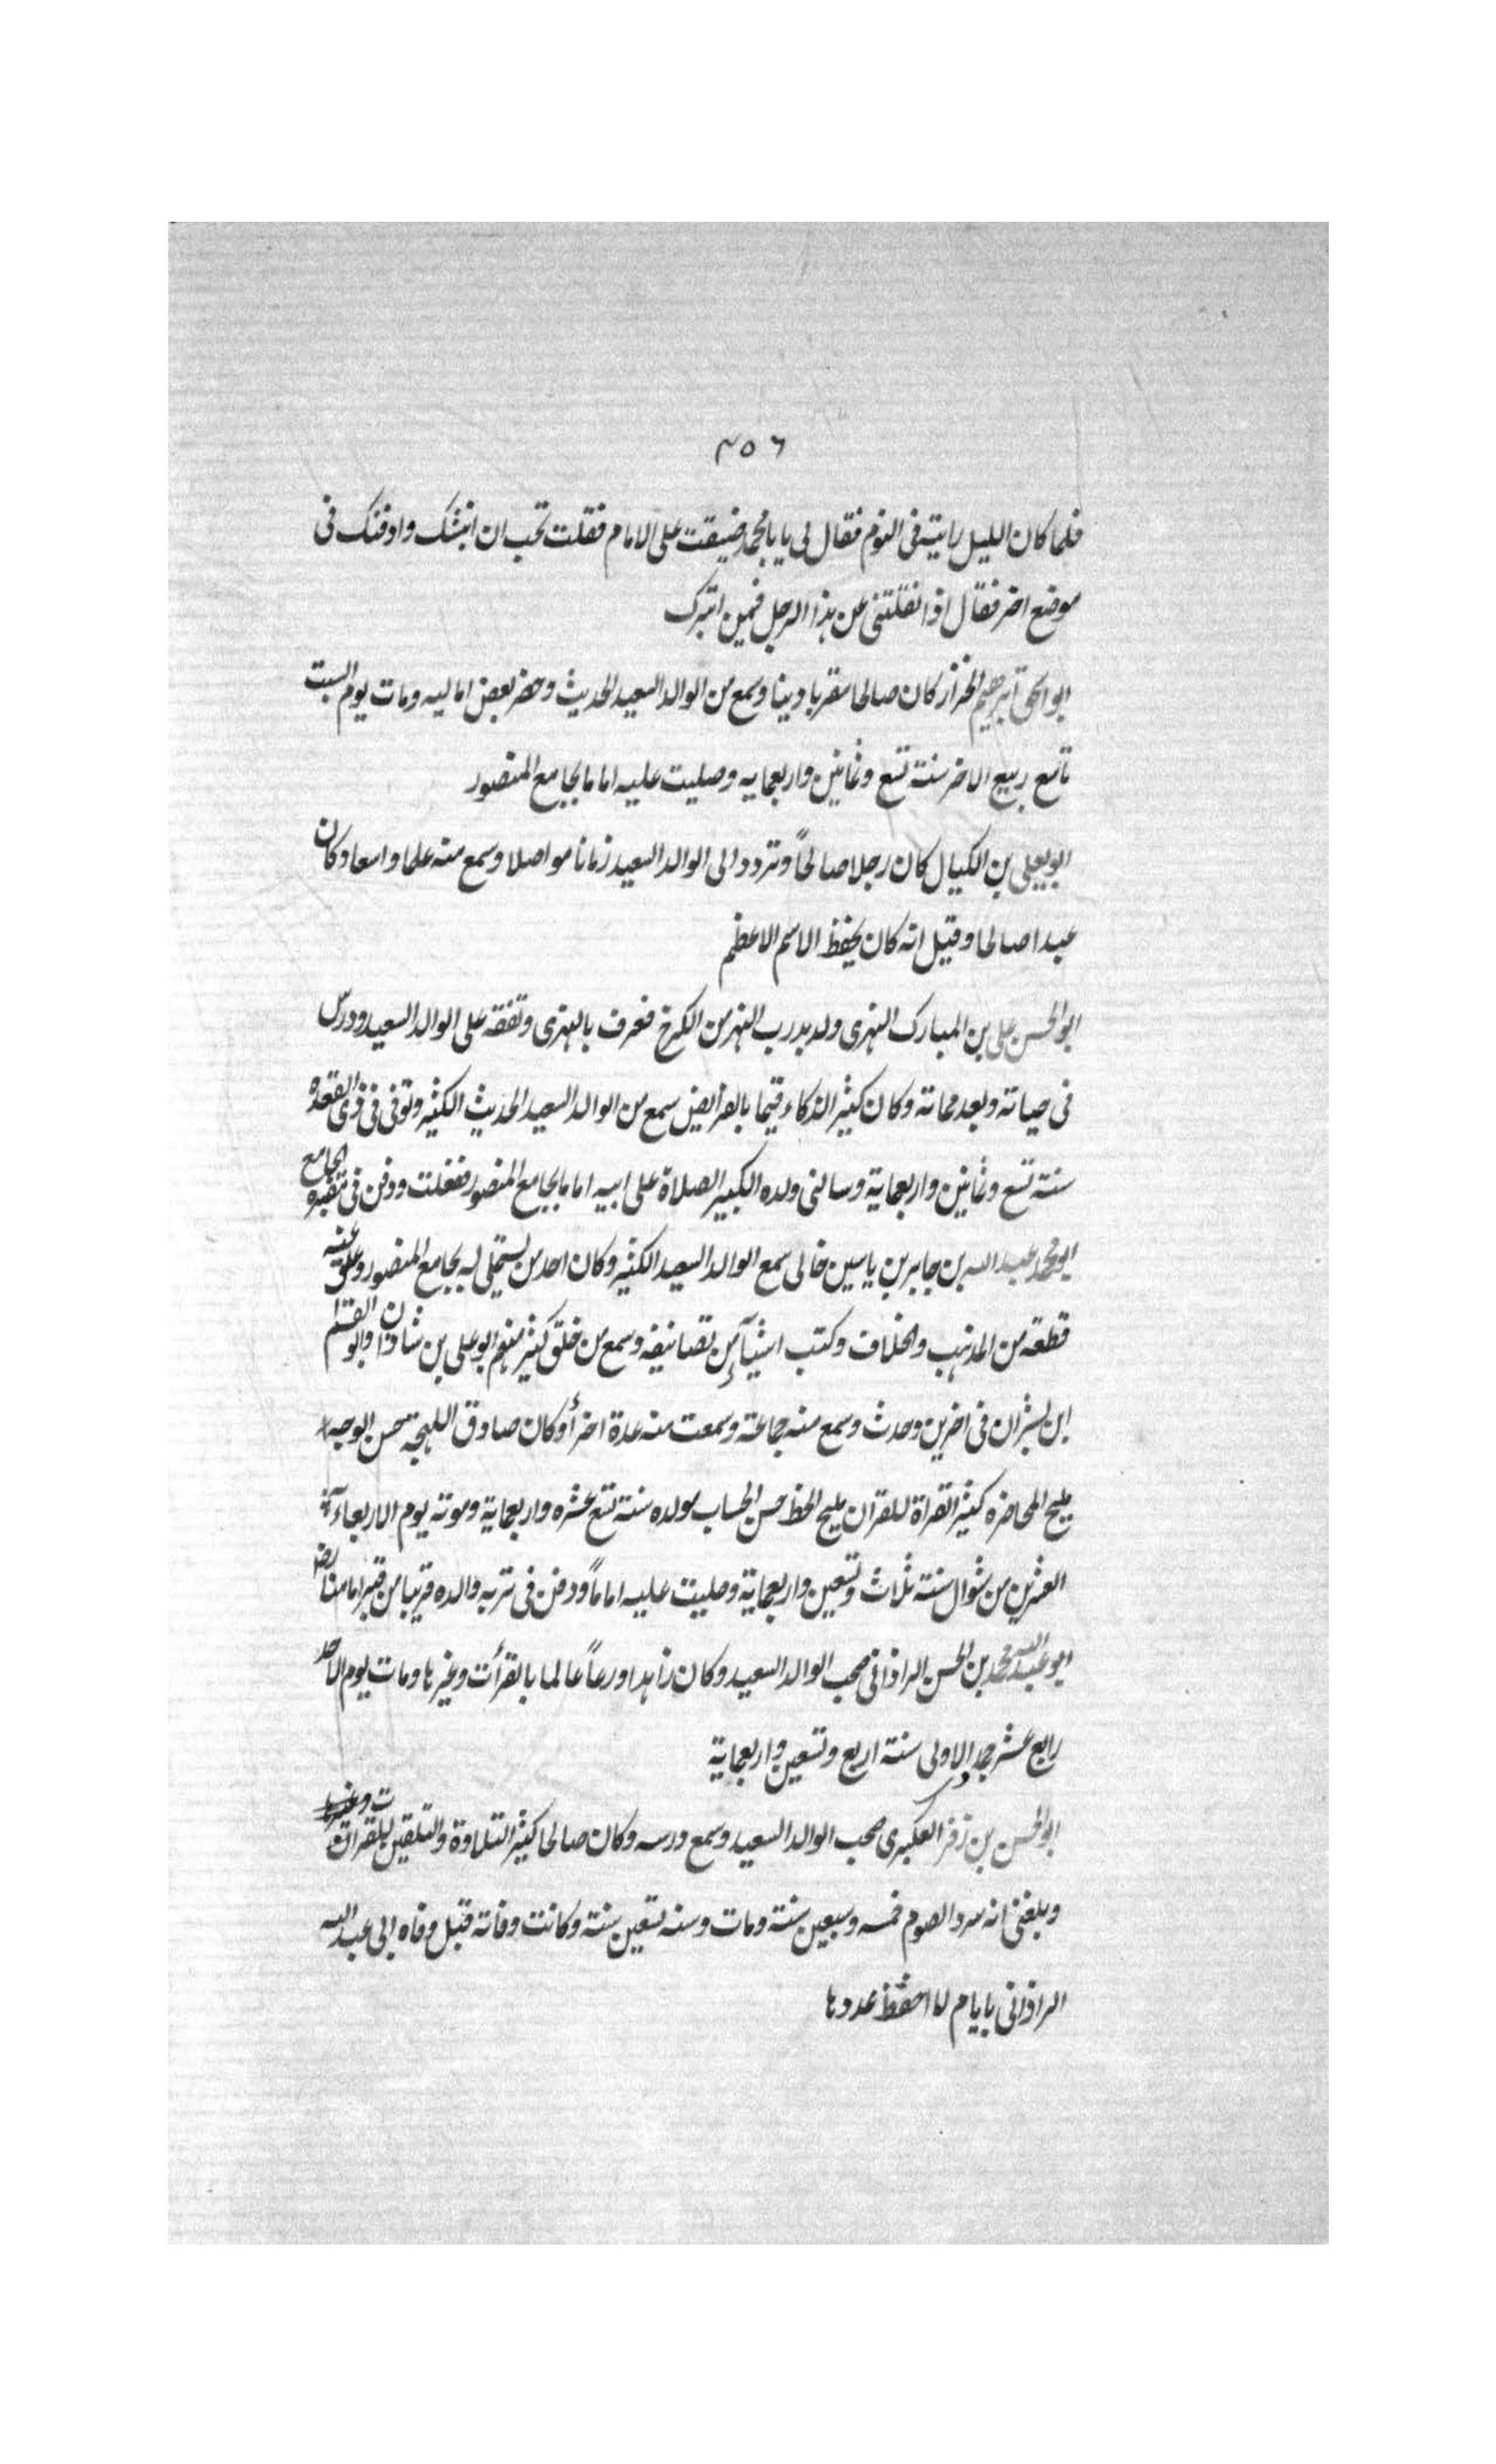 ٤٥٦
فلما كان الليل رايته فى النوم فقال لى يا بامحمد ضيقت على الامام فقلت تحب ان انبشك وادفنك فى
موضع اخر فقال اذا نقلتنى عن هذا الرجل فبمن اتبرك
ابو اسحق ابرهيم الخراز كان صالحا مقريا دينا وسمع من الوالد السعيد الحديث وحضر بعض اماليه ومات يوم السبت
تاسع ربيع الاخر سنة تسع وثمانين واربعمايه وصليت عليه اماما بجامع المنصور
ابو يعلى بن الكيال كان رجلا صالحاً وتردد الى الوالد السعيد زمانا مواصلا وسمع منه علما واسعا وكان
عبدا صالحا وقيل انه كان يحفظ الاسم الاعظم
ابو الحسن على بن المبارك النهرى ولد بدرب النهر من الكرخ فعرف بالنهرى وتفقه على الوالد السعيد ودرس
فى حياته وبعد مماته وكان كثير الذكاء قيما بالفرايض سمع من الوالد السعيد الحديث الكثير وتوفى فى ذى القعده
سنة تسع وثمانين واربعماية وسالنى ولده الكبير الصلاة على ابيه اماما بجامع المنصور ففعلت ودفن فى مقبرة الجامع
ابو محمد عبد الله بن جابر بن ياسين خالى سمع الوالد السعيد الكثير وكان احد من يستملى له بجامع المنصور وعلق عنه
قطعة من المذهب والخلاف وكتب اشيآء من تصانيفه وسمع من خلق كثير منهم ابو على بن شاذان وابو القسم
ابن بشران فى اخرين وحدث وسمع منه جماعة وسمعت منه عدة اجزأ وكان صادق اللهجة حسن الوجه
مليح المحاضره كثير القراة للقران مليح الخط حسن الحساب مولده سنة تسع عشره واربعماية وموته يوم الاربعاء
العشرين من شوال سنة ثلاث وتسعين واربعماية وصليت عليه اماماً ودفن فى تربه والده قريبا من قبر امامنا رضه
ابو عبد الله محمد بن الحسن الراذانى صحب الوالد السعيد وكان زاهدا ورعاً عالما بالقرأت وغيرها ومات يوم الاحد
رابع عشر جمادى الاولى سنة اربع وتسعين واربعماية
ابو الحسن بن زفر العكبرى صحب الوالد السعيد وسمع درسه وكان صالحا كثير التلاوة والتلقين للقران
وبلغنى انه سرد الصوم خمسه وسبعين سنة ومات وسنه تسعين سنة وكانت وفاته قبل وفاه ابى عبد الله
الراذانى بايام لا احفظ عددها